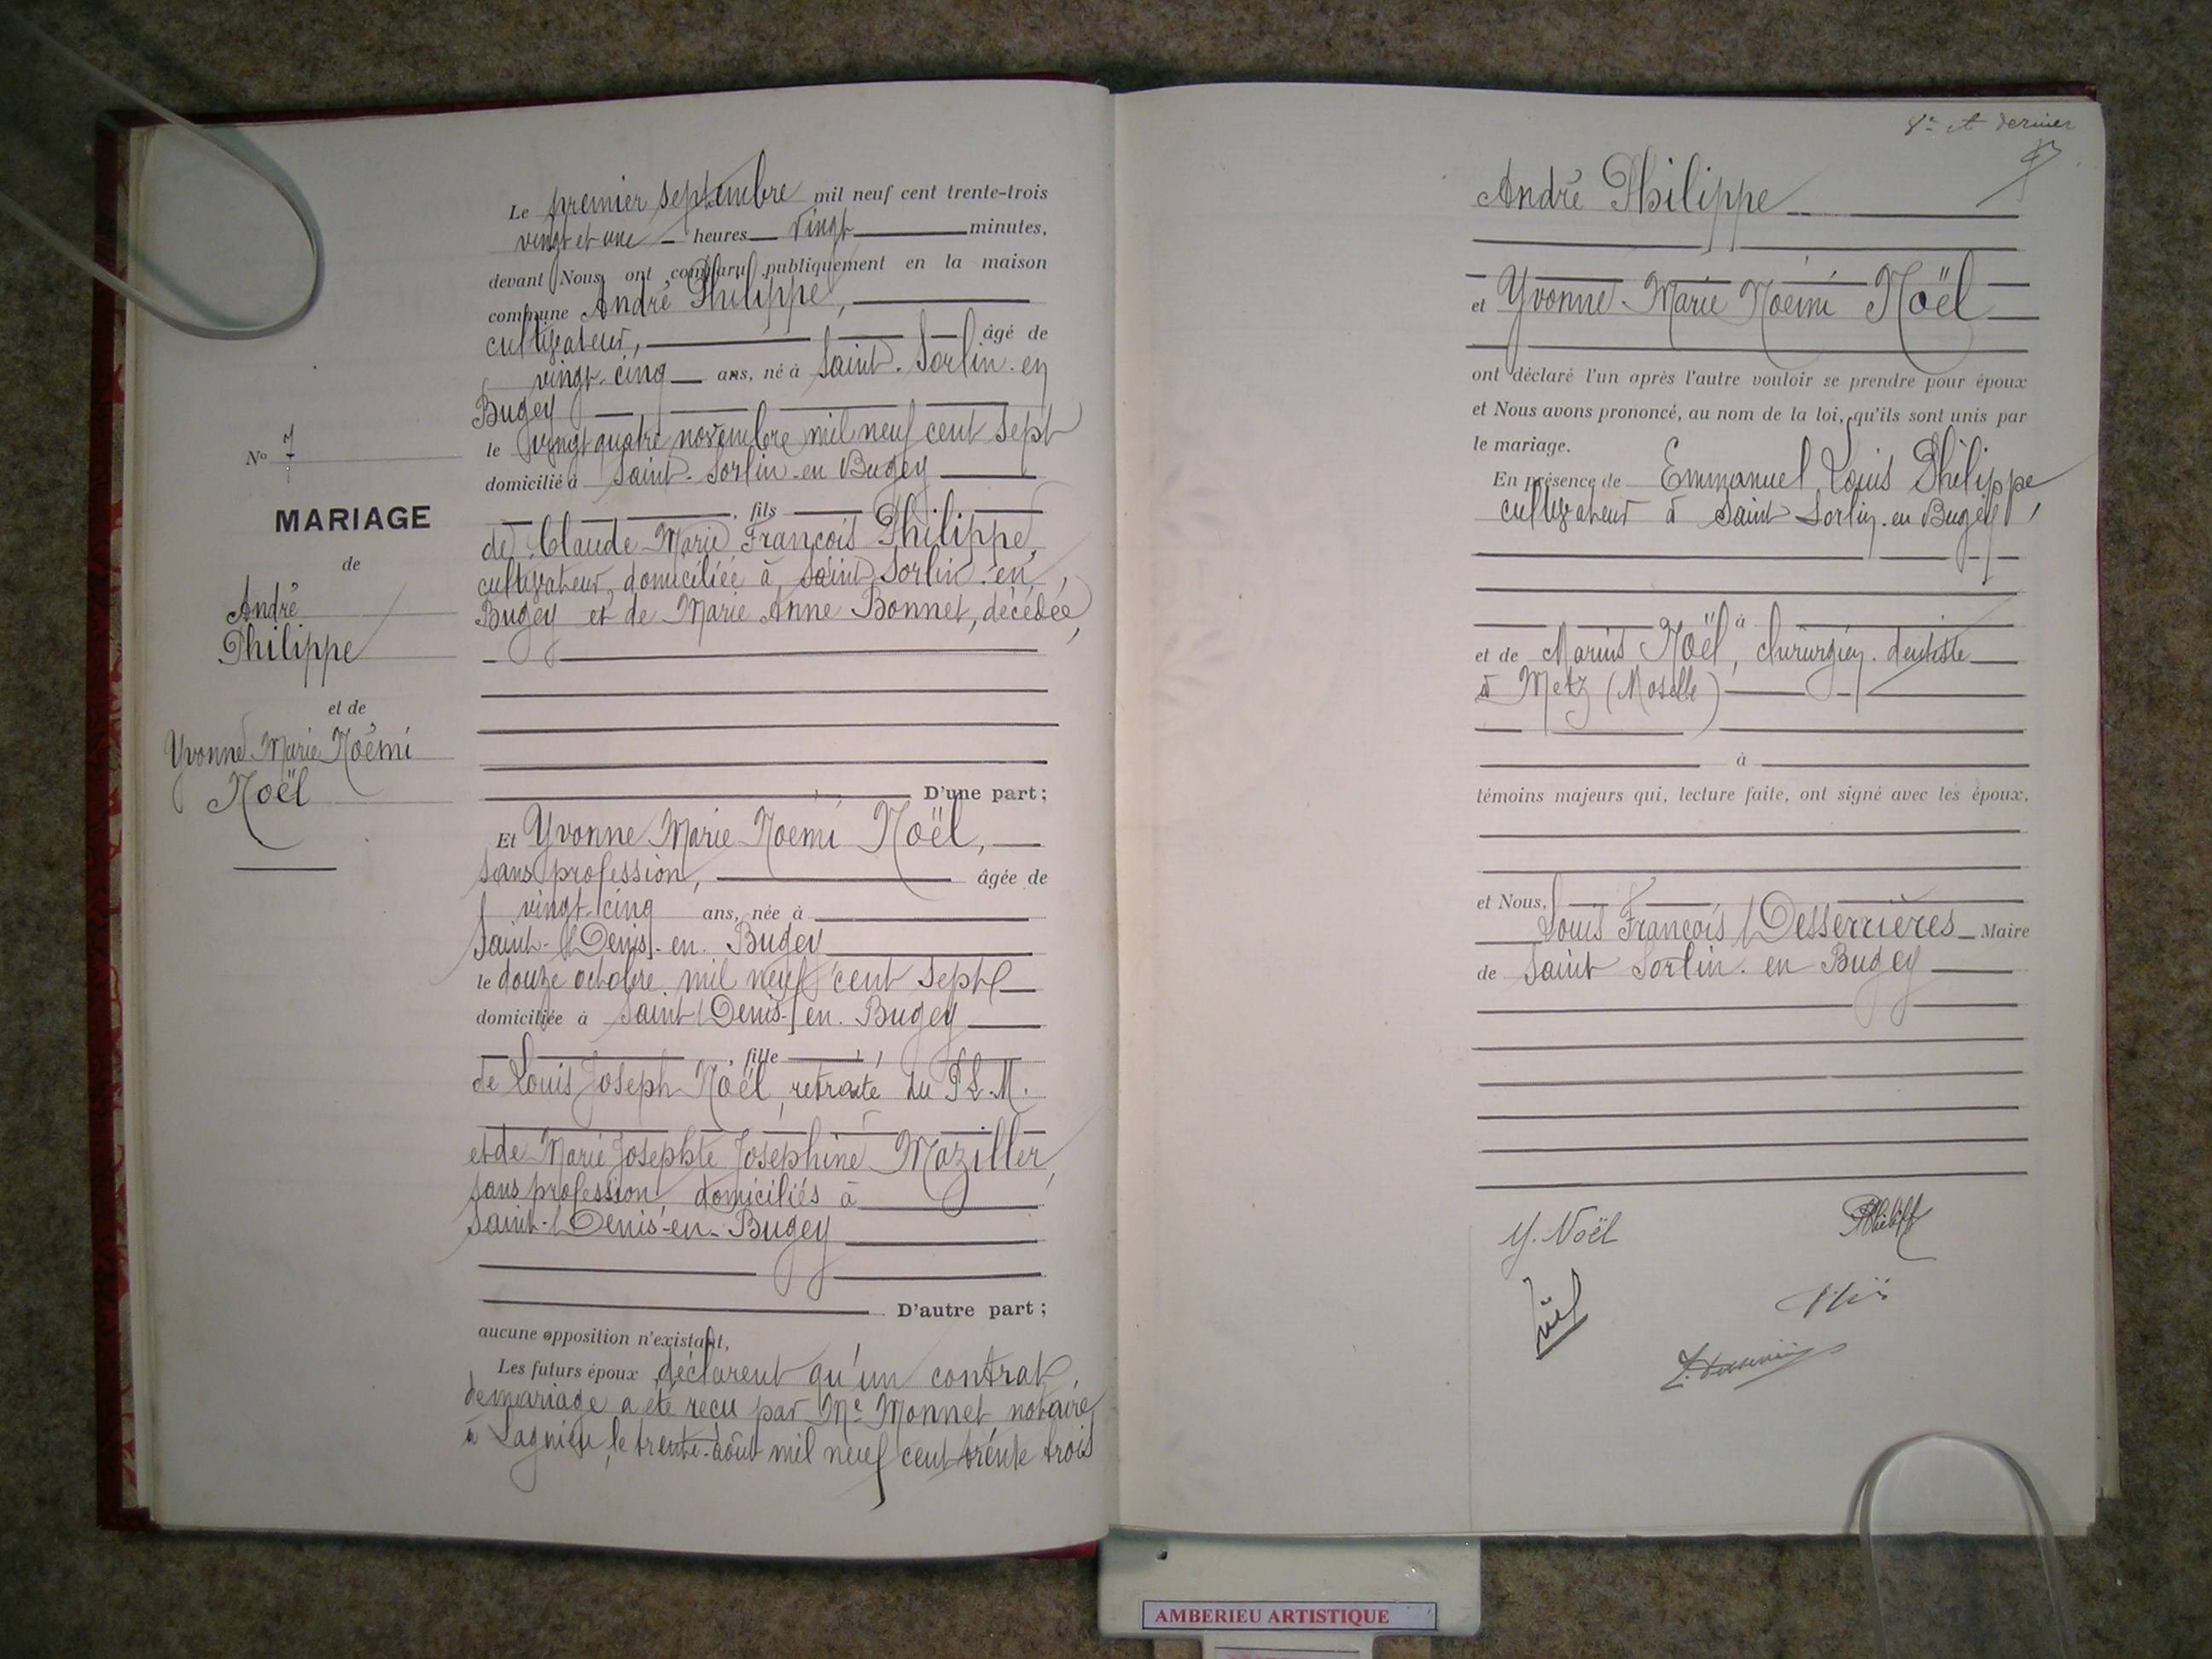 Le premier septembre mil neuf cent trente-trois
vingt et une heures vingt minutes,
devant Nous, ont comparu publiquement en la maison
commune André Philippe,
cultivateur, âgé de
vingt-cinq ans, né à Saint-Sorlin-en
Bugey
le vingt quatre novembre mil neuf cent sept
domicilié à Saint-Sorlin-en Bugey
, fils
de Claude Marie François Philippe,
cultivateur, domiciliée à Saint Sorlin-en
Bugey et de Marie Anne Bonnet, décédée,
D'une part;
Nº 7
MARIAGE
de
André
Philippe
et de
Yvonne Marie Noémi
Noël
Et Yvonne Marie Noemi Noël,
sans profession, âgée de
vingt-cinq ans, née à
Saint-Denis-en-Bugey
le douze octobre mil neuf cent sept
domiciliée à Saint Denis-en-Bugey
, fille
de Louis Joseph Noël, retraité du P.L.M.
et de Marie Josephte Joséphine Maziller,
sans profession domiciliés à
Saint-Denis-en-Bugey
D'autre part;
aucune opposition n'existant,
Les futurs époux déclarent qu'un contrat
de mariage a été reçu par Me Monnet notaire
à Lagnieu, le trente-août mil neuf cent trente trois
8e et dernier
André Philippe
et Yvonne Marie Noémi Noël
ont déclaré l'un après l'autre vouloir se prendre pour époux
et Nous avons prononcé, au nom de la loi, qu'ils sont unis par
le mariage.
En présence de Emmanuel Louis Philippe,
cultivateur à Saint Sorlin-en Bugey,
à
et de Marius Noël, chirurgien-dentiste
à Metz (Moselle)
à
témoins majeurs qui, lecture faite, ont signé avec les époux,
et Nous,
Louis François Desserrières Maire
de Saint Sorlin-en Bugey
Y. Noël
AMBERIEU ARTISTIQUE